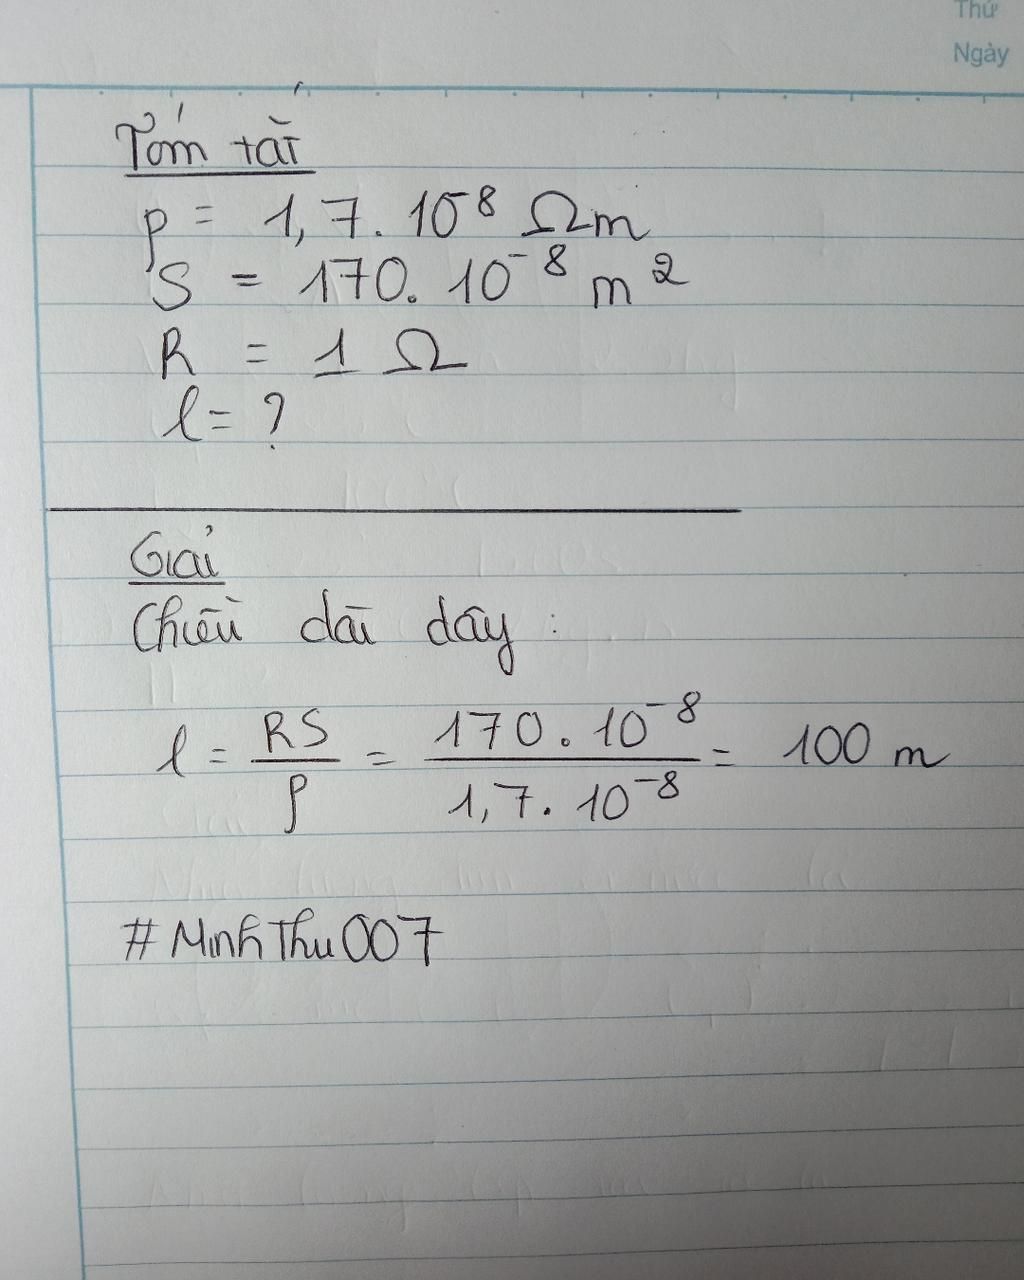 Thứ
Ngày
Tóm tắt
ρ = 1,7.10⁻⁸ Ωm
S = 170.10⁻⁸ m²
R = 1 Ω
l = ?
Giải
Chiều dài dây :
l = RS/ρ = 170.10⁻⁸/1,7.10⁻⁸ = 100 m
#MinhThu007